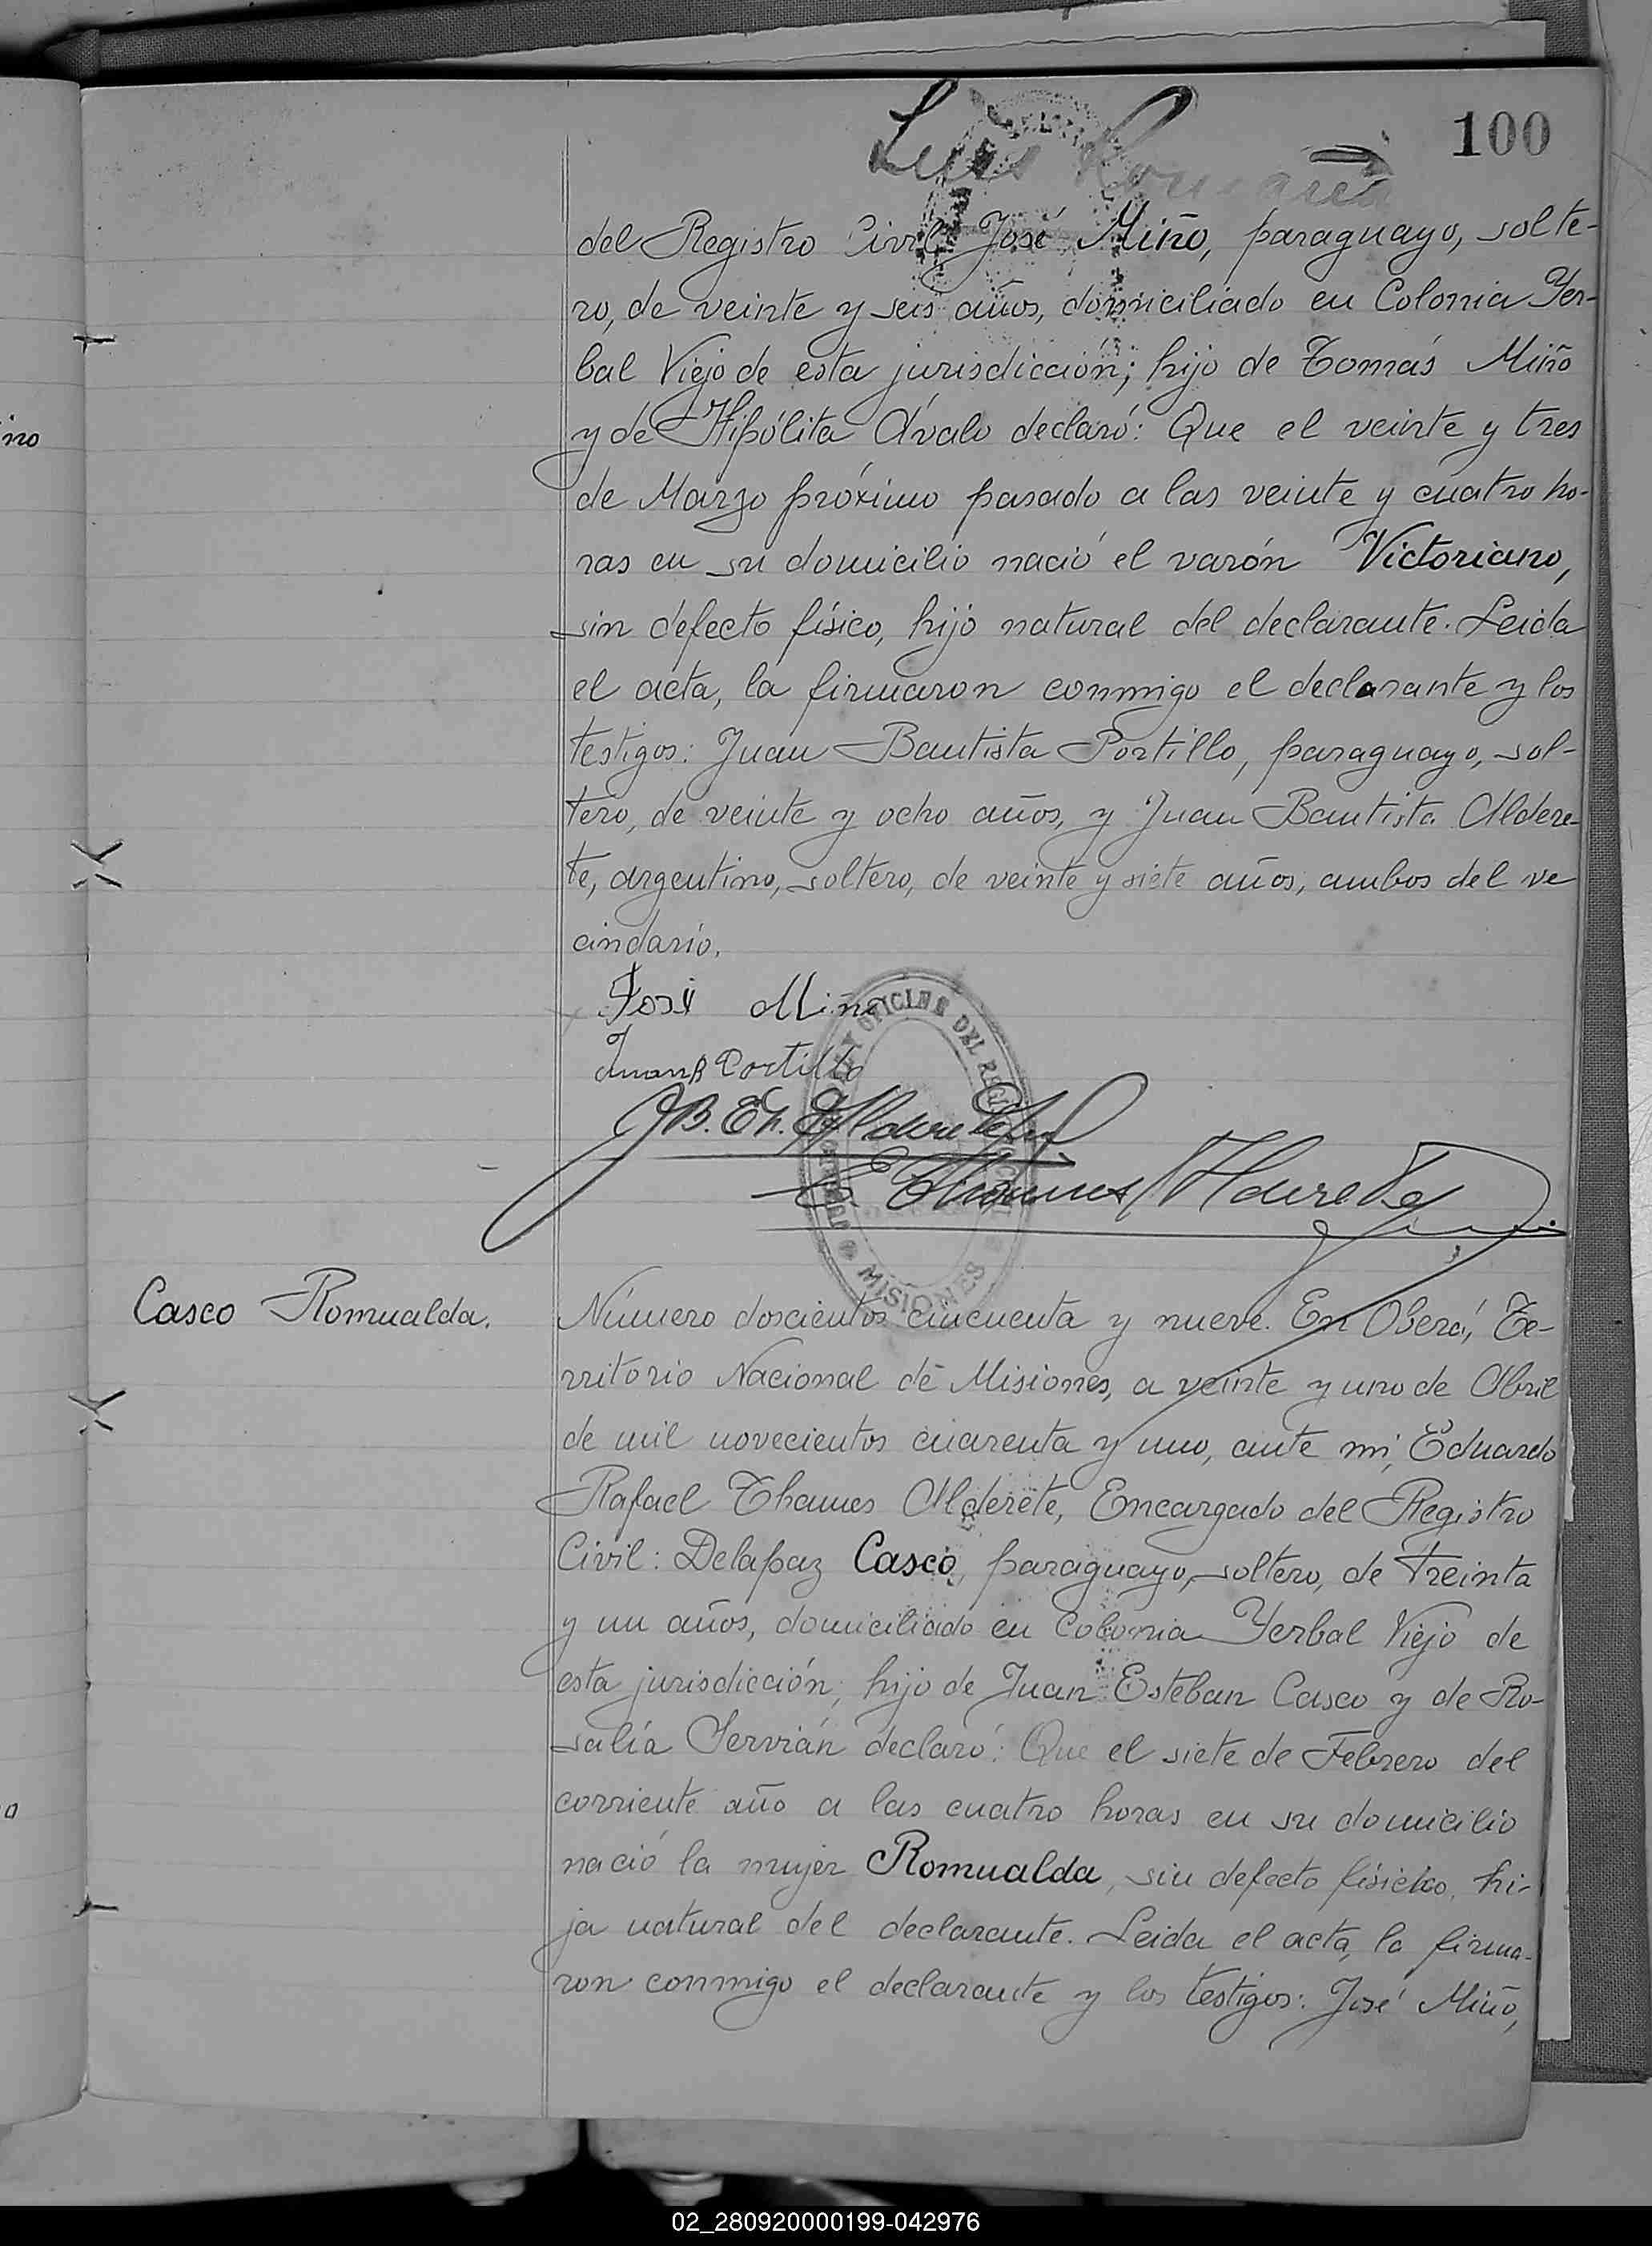 100
Luis
del Registro Civil José Miño, paraguayo, solte-
ro, de veinte y seis años, domiciliado en Colonia Yer-
bal Viejo de esta jurisdicción; hijo de Tomás Miño
y de Hipólita Ávalo declaró: Que el veinte y tres
de Marzo próximo pasado a las veinte y cuatro ho-
ras en su domicilio nació el varón Victoriano,
sin defecto físico, hijo natural del declarante. Leida
el acta, la firmaron conmigo el declarante y los
testigos: Juan Bautista Portillo, paraguayo, sol-
tero, de veinte y ocho años, y Juan Bautista Aldere-
te, argentino, soltero, de veinte y siete años, ambos del ve
cindario.
José Miño
Juan B Portillo
J B. Th. Alderete
E Thames Alderete
OFICINA DEL REG
MISIONES
Casco Romualda.
Número doscientos cincuenta y nueve. En Oberá, Te-
rritorio Nacional de Misiones, a veinte y uno de Abril
de mil novecientos cuarenta y uno, ante mí, Eduardo
Rafael Thames Alderete, Encargado del Registro
Civil: Delapaz Casco, paraguayo, soltero, de treinta
y un años, domiciliado en Colonia Yerbal Viejo de
esta jurisdicción, hijo de Juan Esteban Casco y de Ro-
salía Servián declaró: Que el siete de Febrero del
corriente año a las cuatro horas en su domicilio
nació la mujer Romualda, sin defecto físicko, hi-
ja natural del declarante. Leida el acta, la firma-
ron conmigo el declarante y los testigos: José Miño,
ino
o
02_280920000199-042976